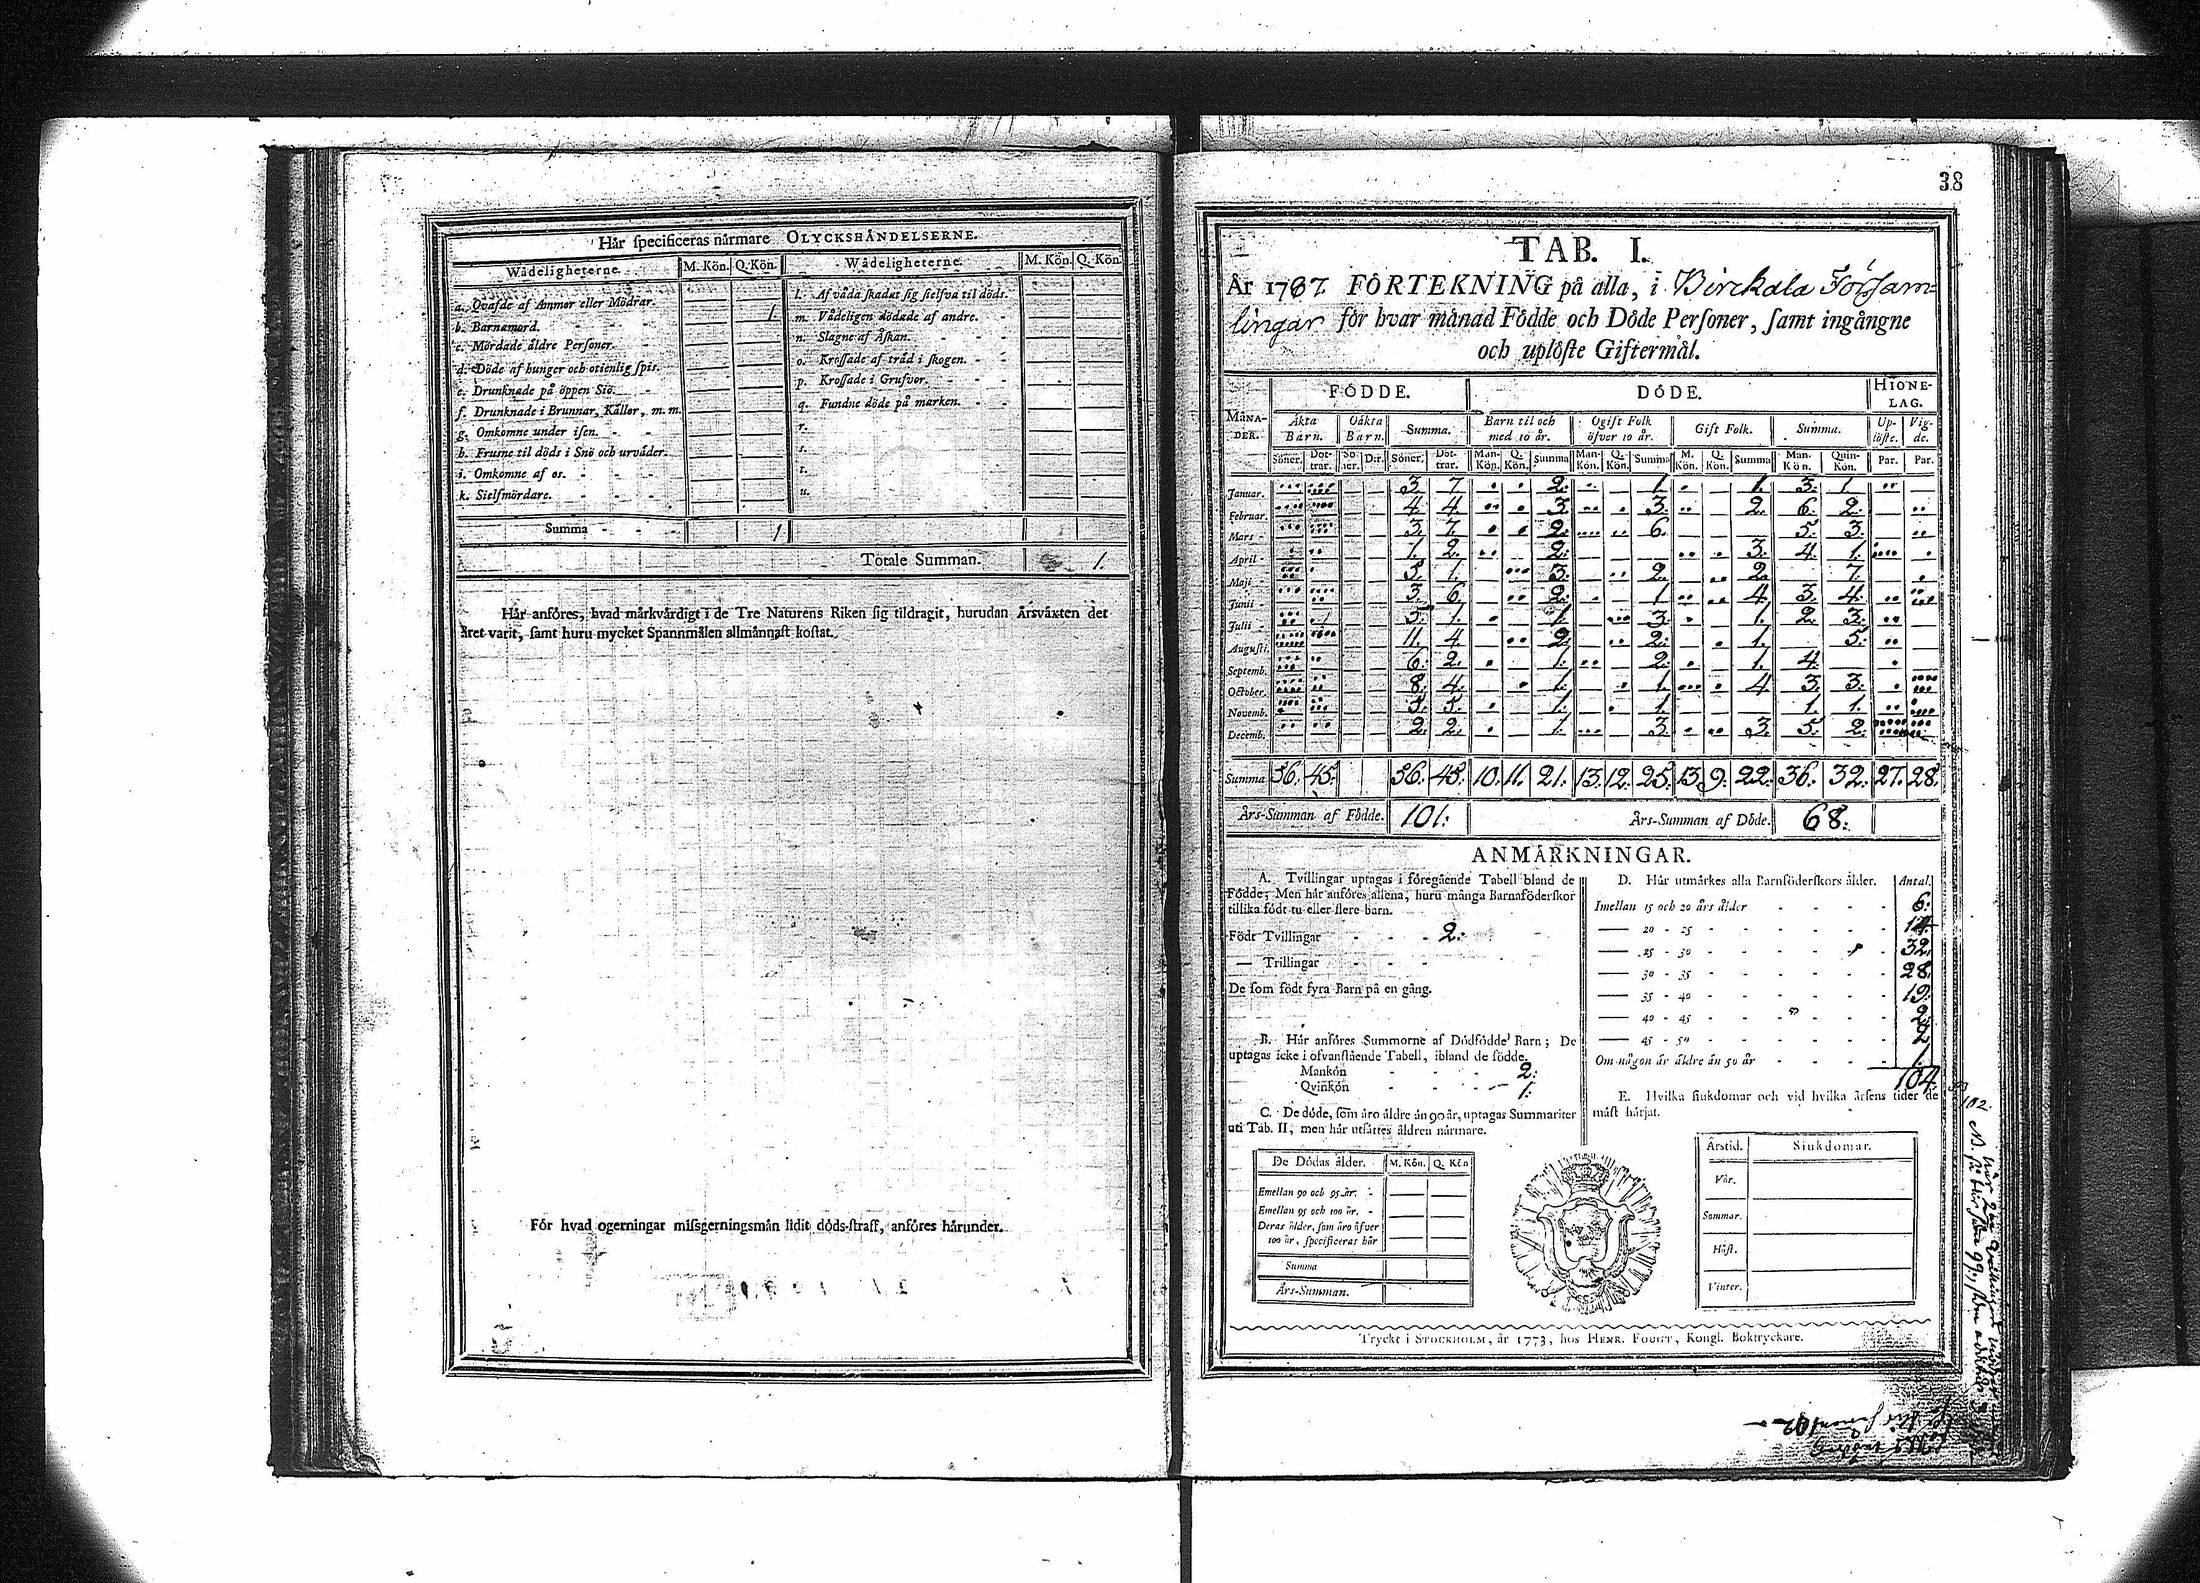 Här specificeras närmare OLYCKSHÄNDELSERNE.
Wådeligheterne. M. Kön. Q. Kön. Wådeligheterne. M. Kön. Q. Kön.
a. Qvafde af Ammor eller Mödrar.
b. Barnamord. 1.
c. Mördade äldre Personer.
d. Döde af hunger och otienlig spis.
e. Drunknade på öppen Siö.
f. Drunknade i Brunnar, Källor, m. m.
g. Omkomne under isen.
h. Frusne til döds i Snö och urväder.
i. Omkomne af os.
k. Sielfmördare.
l. Af våda skadat sig sielfva til döds.
m. Vådeligen dödade af andre.
n. Slagne af Åskan.
o. Krossade af träd i skogen.
p. Krossade i Grufvor.
q. Fundne döde på marken.
r.
s.
t.
u.
Summa 1
Totale Summan. 1.
Här anföres, hvad märkvärdigt i de Tre Naturens Riken sig tildragit, hurudan Årsväxten det
året varit, samt huru mycket Spannmålen allmännast kostat.
För hvad ogerningar missgerningsmän lidit döds-straff, anföres härunder.
38
TAB. I.
År 1787. FÖRTEKNING på alla, i Birckala Församlingar
för hvar månad Födde och Döde Personer, samt ingångne
och uplöste Giftermål.
MÅNADER. FÖDDE. DÖDE. HIONELAG.
Äkta Barn. Oäkta Barn. Summa. Barn til och med 10 år. Ogift Folk öfver 10 år. Gift Folk. Summa. Uplöste. Vigde.
Söner. Döttrar. Söner. D:r. Söner. Döttrar. Man-Kön. Q. Kön. Summa Man-Kön. Q. Kön. Summa M. Kön. Q. Kön. Summa Man-Kön. Quin-Kön. Par. Par.
Januar. 3. 7. 2. 1. 1. 3. 1
Februar. 4. 4. 3. 3. 2. 6. 2.
Mars 3. 7. 2. 6. 5. 3.
April 1. 2. 2. 3. 4. 1.
Maji 5. 1. 3. 2. 2. 7.
Junii 3. 6. 2. 1 4. 3. 4.
Julii 5. 1. 1. 3. 1. 2. 3.
Augusti. 11. 4. 2. 2. 1. 5.
Septemb. 6. 2. 1. 2. 1. 4.
October. 8. 4. 1. 1. 4 3. 3.
Novemb. 5. 5. 1. 1. 1. 1.
Decemb. 2. 2. 1. 3. 3. 5. 2.
Summa 56. 45. 56. 45. 10. 11. 21. 13. 12. 25. 13. 9. 22. 36. 32. 27. 28.
Års-Summan af Födde. 101. Års-Summan af Döde. 68.
ANMÄRKNINGAR.
A. Tvillingar uptagas i föregående Tabell bland de
Födde; Men här anföres allena, huru många Barnaföderskor
tillika födt tu eller flere barn.
Födt Tvillingar 2.
— Trillingar
De som födt fyra Barn på en gång.
B. Här anföres Summorne af Dödfödde Barn; De
uptagas icke i ofvanstående Tabell, ibland de födde.
Mankön 2.
Qvinkön 1.
C. De döde, som äro äldre än 90 år, uptagas Summariter
uti Tab. II, men här utsättes åldren närmare.
De Dödas ålder. M. Kön. Q. Kön
Emellan 90 och 95 år.
Emellan 95 och 100 år.
Deras ålder, som äro öfver
100 år, specificeras här
Summa
Års-Summan.
D. Här utmärkes alla Barnföderskors ålder. Antal.
Imellan 15 och 20 års ålder 6.
— 20 - 25 14.
— 25 - 30 32.
— 30 - 35 28.
— 35 - 40 19.
— 40 - 45 2.
— 45 - 50 2
Om någon är äldre än 50 år 1.
104.
102.
E. Hvilka siukdomar och vid hvilka årsens tider de
mäst härjat.
Årstid. Siukdomar.
Vår.
Sommar.
Häst.
Vinter.
Tryckt i STOCKHOLM, år 1773, hos HENR. FOUGT, Kongl. Boktryckare.